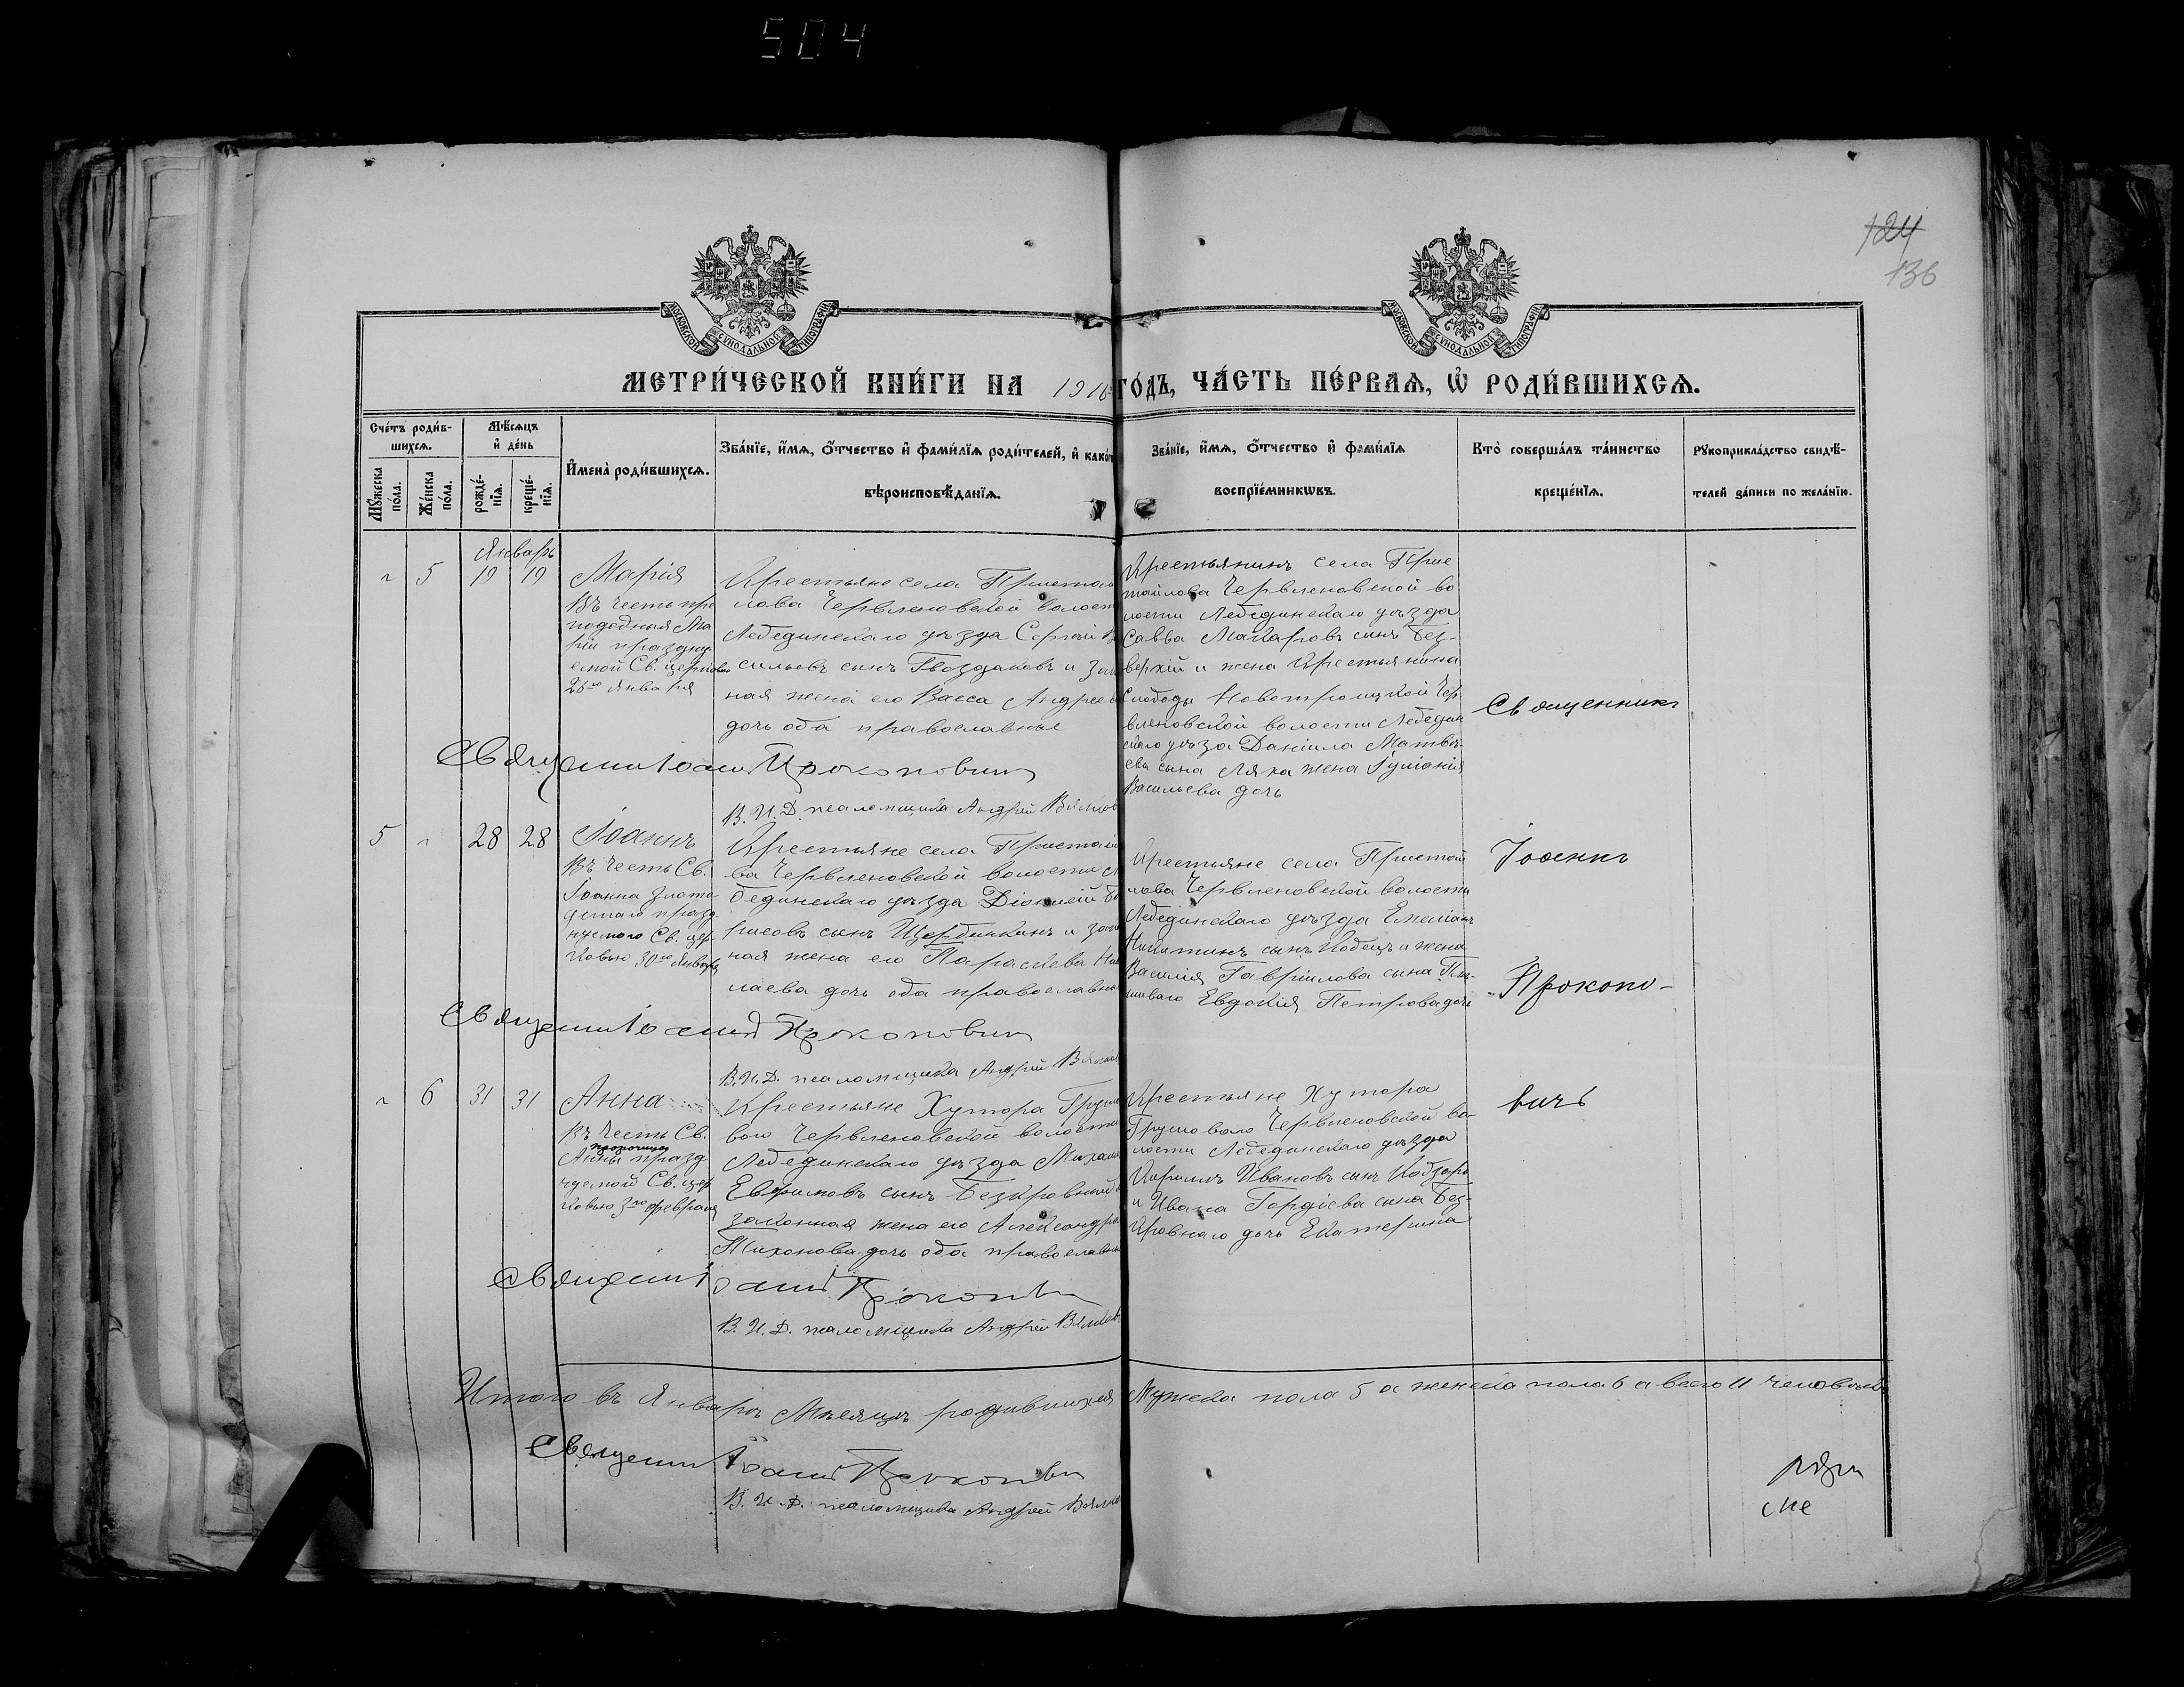 504
124
136
МОСКОВСКОЙ СѴНОДАЛЬНОЙ ТИПОГРАФІИ
МОСКОВСКОЙ СѴНОДАЛЬНОЙ ТИПОГРАФІИ
МЕТРИ́ЧЕСКОЙ КНИ́ГИ НА 1916 ГО́ДЪ, ЧА́СТЬ ПЕ́РВАѦ, Ѡ҆ РОДИ́ВШИХСѦ.
Сче́тъ роди́в-
шихсѧ.
Мѣ́сѧцъ
и҆ де́нь
И҆мена̀ роди́вшихсѧ.
Зва́нїе, и҆́мѧ, ѻ҆́тчество и҆ фами́лїѧ роди́телей, и҆ како́
вѣроисповѣ́данїѧ.
Зва́нїе, и҆́мѧ, ѻ҆́тчество и҆ фами́лїѧ
воспрїе́мникѡвъ.
Кто̀ соверша́лъ та́инство
креще́нїѧ.
Рꙋкоприкла́дство свидѣ́-
телей за́писи по жела́нїю.
Мꙋ́жеска
по́ла.
Же́нска
по́ла.
рожде́-
нїѧ.
креще́-
нїѧ.
Январь
5 19 19
Марія
Въ честь пре
подобныя Ма
ріи праздну
емой Св. церковью
26го Января
Крестьяне села Пристай
лова Червленовской волост
Лебединскаго уѣзда Сергѣй Ва
сильевъ сынъ Гвоздаковъ и зако
ная жена его Васса Андреев
дочь оба православные
Крестьянинъ села Прис
тайлова Червленовской во
лости Лебединскаго уѣзда
Савва Макаровъ сынъ Без-
верхій и жена Крестьянина
Слободы Новотроицкой Чер
вленовской волости Лебедин
скаго уѣзда Даніила Матвѣ-
ева сына Ляха жена Іуліанія
Васильева дочь
Священникъ
Священ Іоанн Прокопович
В. И. Д. псаломщика Андрей
5 28 28
Іоаннъ
Въ честь Св.
Іоанна Злато
устаго празд
нуемаго Св. цер
ковью 30го Января
Крестьяне села Пристай
ва Червленовской волости Л
бединскаго уѣзда Діонисій Бо
рисовъ сынъ Щербинкинъ и зако
ная жена его Параскева Ни
лаева дочь оба православны
Крестьяне села Пристай
лова Червленовской волости
Лебединскаго уѣзда Емеліанъ
Никитинъ сынъ Кобецъ и жена
Василія Гавріилова сына
Евдокія Петрова дочь
Іоаннъ
Прокопо-
Священ Іоанн Прокопович
В. И. Д. псаломщика Андрей
6 31 31
Анна
Въ честь Св.
пророчицы
Анны празд
нуемой Св. цер
ковью 3го февраля
Крестьяне Хутора Груше
вого Червленовской волости
Лебединскаго уѣзда Михаил
Евфимовъ сынъ Безкровный
законная жена его Александра
Тихонова дочь оба православны
Крестьяне Хутора
Грушового Червленовской во-
лости Лебединскаго уѣзда
Кириллъ Ивановъ сынъ Кобзарь
и Ивана Гордіева сына Без-
кровнаго дочь Екатерина
вичъ
Священ Іоанн Прокопович
В. И. Д. псаломщика Андрей
Итого въ Январѣ Мѣсяцѣ родившихся Мужска пола 5 а женска пола 6 а всего 11 человѣкъ
Священ Іоанн Прокопович
В. И. Д. псаломщика Андрей